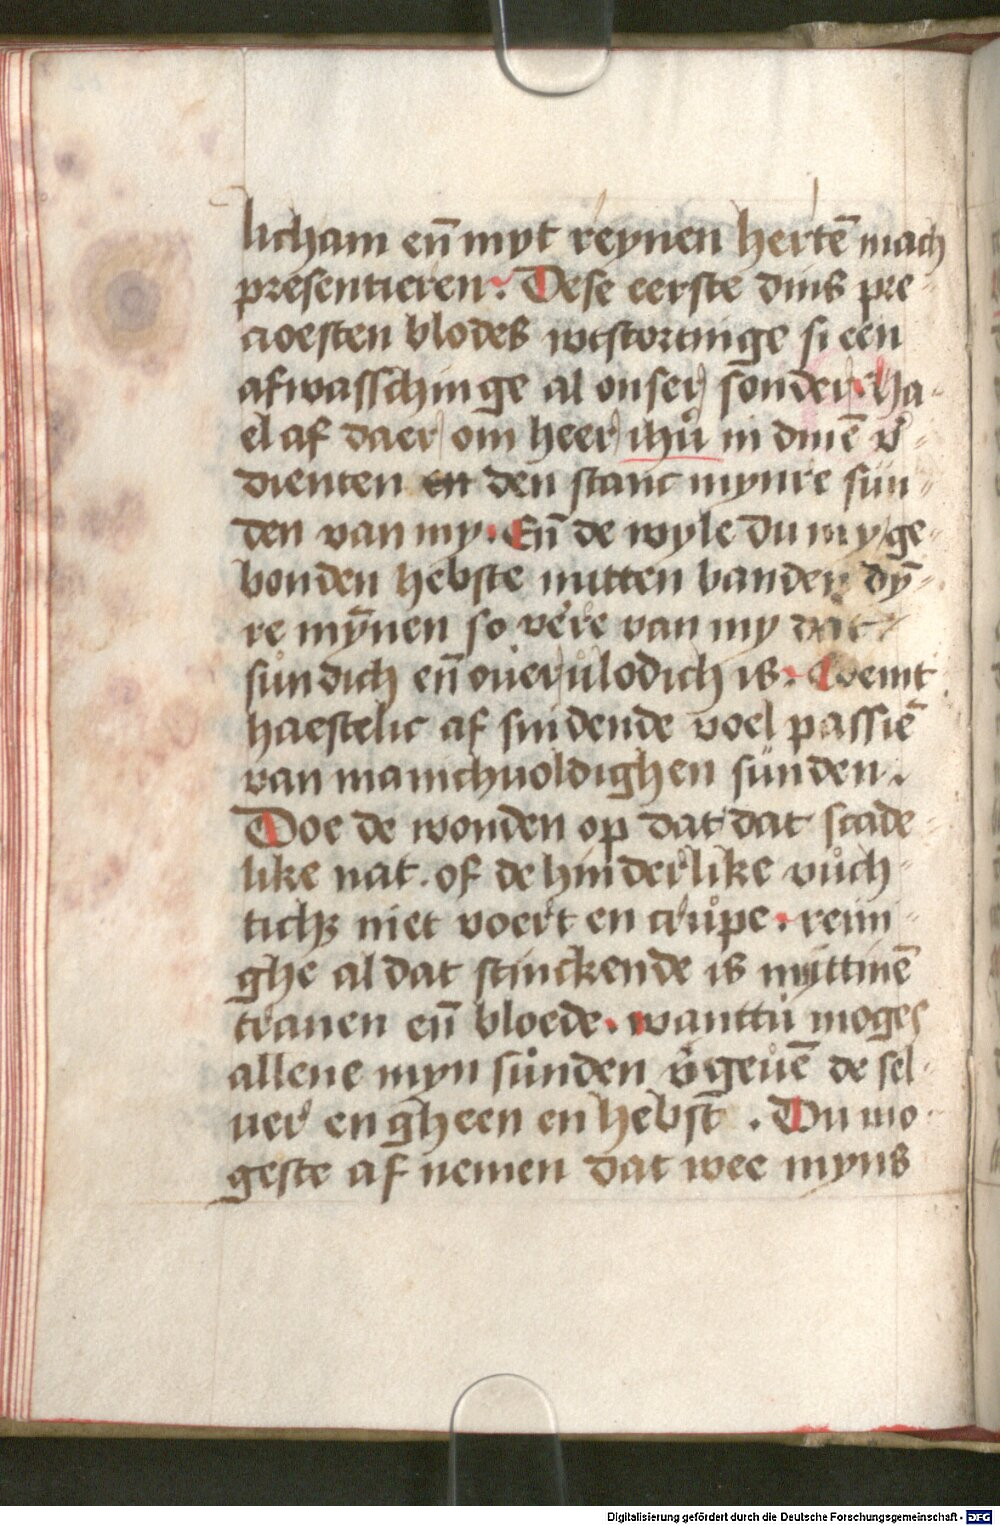 licham en̄ myt reynen hertē mach
presentieren. Dese eerste dins pre⸗
cioesten blodes wtstortinge si een
afwasschinge al onser sonder. Ha⸗
el af daer om heer ihū in dinē v̓⸗
dienten den stanc mynre sun⸗
den van my. En̄ de wyle du my ge⸗
bonden hebste mitten banden dȳ⸗
re mȳnen so vere van my dat
sůndich en̄ ouervlodich is. Neemt
haestelic af snidende voel passiē
van manichuoldighen sůnden.
Doe de wonden op dat dat scade⸗
like nat. of de hinderlike vůch⸗
tichz niet voert en crůpe. reini⸗
ghe al dat stinckende is mittinē
tranen en̄ bloede. wanttů moges
allene myn sůnden v̓geuē de sel⸗
uer en gheen en hebst̄. Du mo⸗
geste af nemen dat wee myns
Digitalisierung gefördert durch die Deutsche Forschungsgemeinschaft - DFG